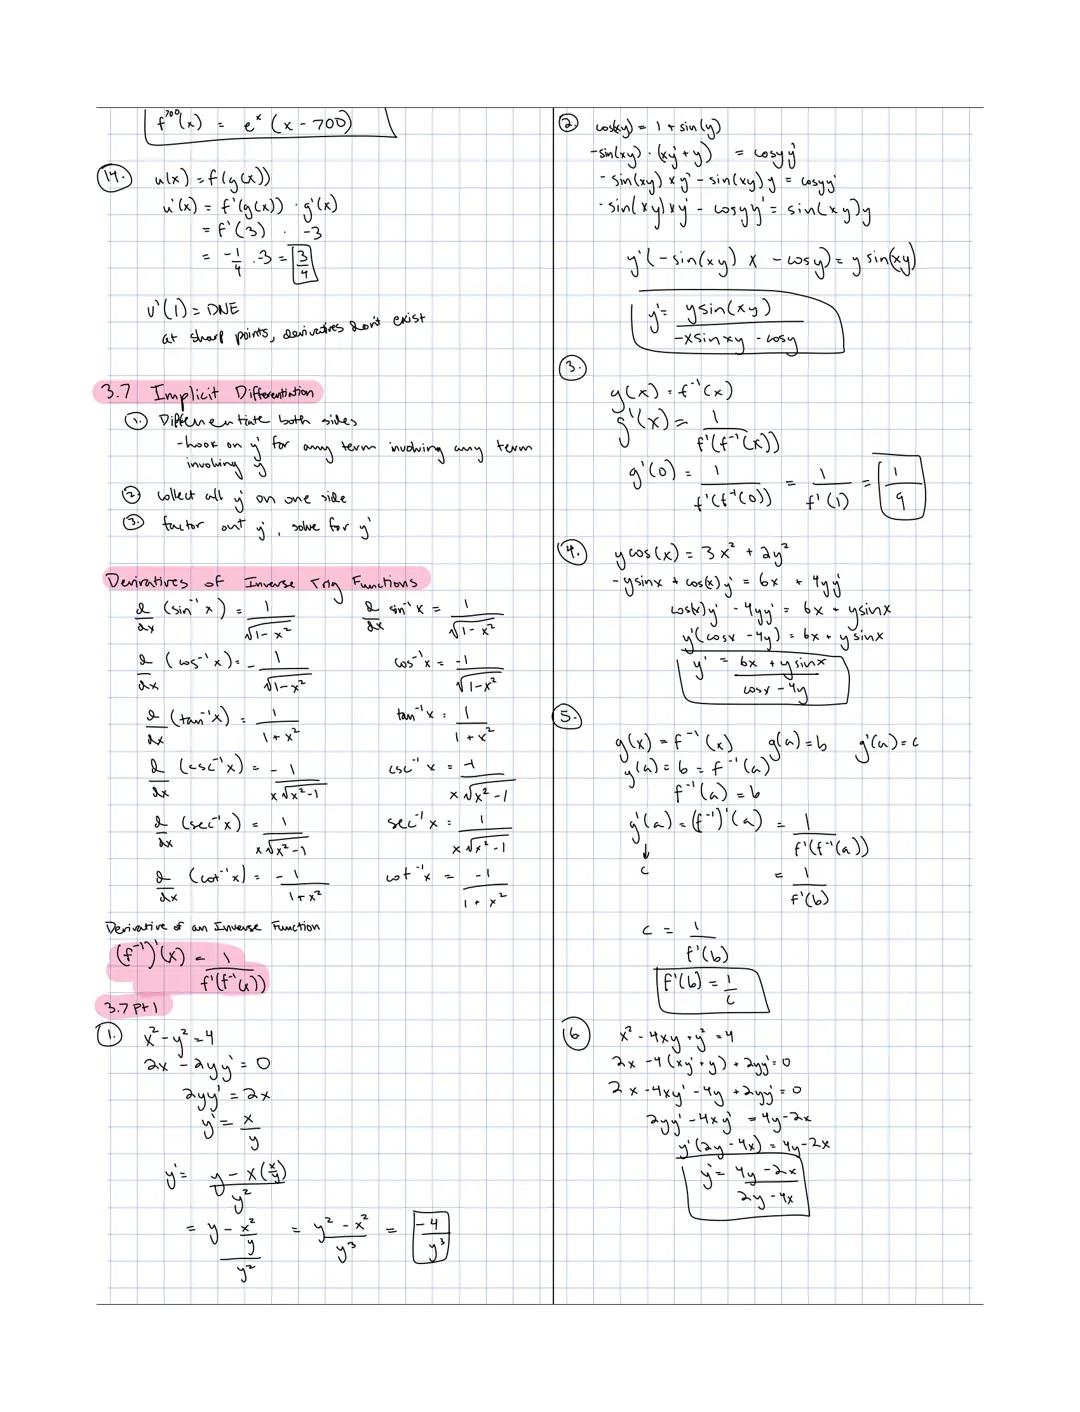 f⁷⁰⁰(x) = eˣ (x - 700)
14. u(x) = f(g(x))
u'(x) = f'(g(x)) · g'(x)
= f'(3) · -3
= -1/4 · 3 = 3/4
u'(1) = DNE
at sharp points, derivatives don't exist
3.7 Implicit Differentiation
1. Differentiate both sides
- hook on y' for any term involving any term
involving y
2. collect all y' on one side
3. factor out y', solve for y'
Derivatives of Inverse Trig Functions
d/dx (sin⁻¹x) = 1/√(1-x²)   d/dx sin⁻¹x = 1/√(1-x²)
d/dx (cos⁻¹x) = - 1/√(1-x²)   cos⁻¹x = -1/√(1-x²)
d/dx (tan⁻¹x) = 1/(1+x²)   tan⁻¹x = 1/(1+x²)
d/dx (csc⁻¹x) = -1/(x√(x²-1))   csc⁻¹x = -1/(x√(x²-1))
d/dx (sec⁻¹x) = 1/(x√(x²-1))   sec⁻¹x = 1/(x√(x²-1))
d/dx (cot⁻¹x) = -1/(1+x²)   cot⁻¹x = -1/(1+x²)
Derivative of an Inverse Function
(f⁻¹)'(x) = 1/(f'(f⁻¹(x)))
3.7 Pt 1
1. x² - y² = 4
2x - 2yy' = 0
2yy' = 2x
y' = x/y
y' = (y - x(x/y))/y²
= (y - x²/y)/y² = (y² - x²)/y³ = -4/y³
2. cos(xy) = 1 + sin(y)
-sin(xy) · (xy' + y) = cosyy'
-sin(xy) xy' - sin(xy)y = cosyy'
-sin(xy)xy' - cosyy' = sin(xy)y
y'(-sin(xy) x - cosy) = y sin(xy)
y' = ysin(xy)/(-xsinxy - cosy)
3.
g(x) = f⁻¹(x)
g'(x) = 1/(f'(f⁻¹(x)))
g'(0) = 1/(f'(f⁻¹(0))) = 1/f'(1) = 1/9
4. ycos(x) = 3x² + 2y²
-ysinx + cos(x)y' = 6x + 4yy'
cos(x)y' - 4yy' = 6x + ysinx
y'(cosx - 4y) = 6x + ysinx
y' = (6x + ysinx)/(cosx - 4y)
5.
g(x) = f⁻¹(x)   g(a) = b   g'(a) = c
g(a) = b = f⁻¹(a)
f⁻¹(a) = b
g'(a) = (f⁻¹)'(a) = 1/(f'(f⁻¹(a))
↓
c
= 1/f'(b)
c = 1/f'(b)
f'(b) = 1/c
6 x² - 4xy + y² = 4
2x - 4(xy' + y) + 2yy' = 0
2x - 4xy' - 4y + 2yy' = 0
2yy' - 4xy' = 4y - 2x
y'(2y - 4x) = 4y - 2x
y' = (4y - 2x)/(2y - 4x)